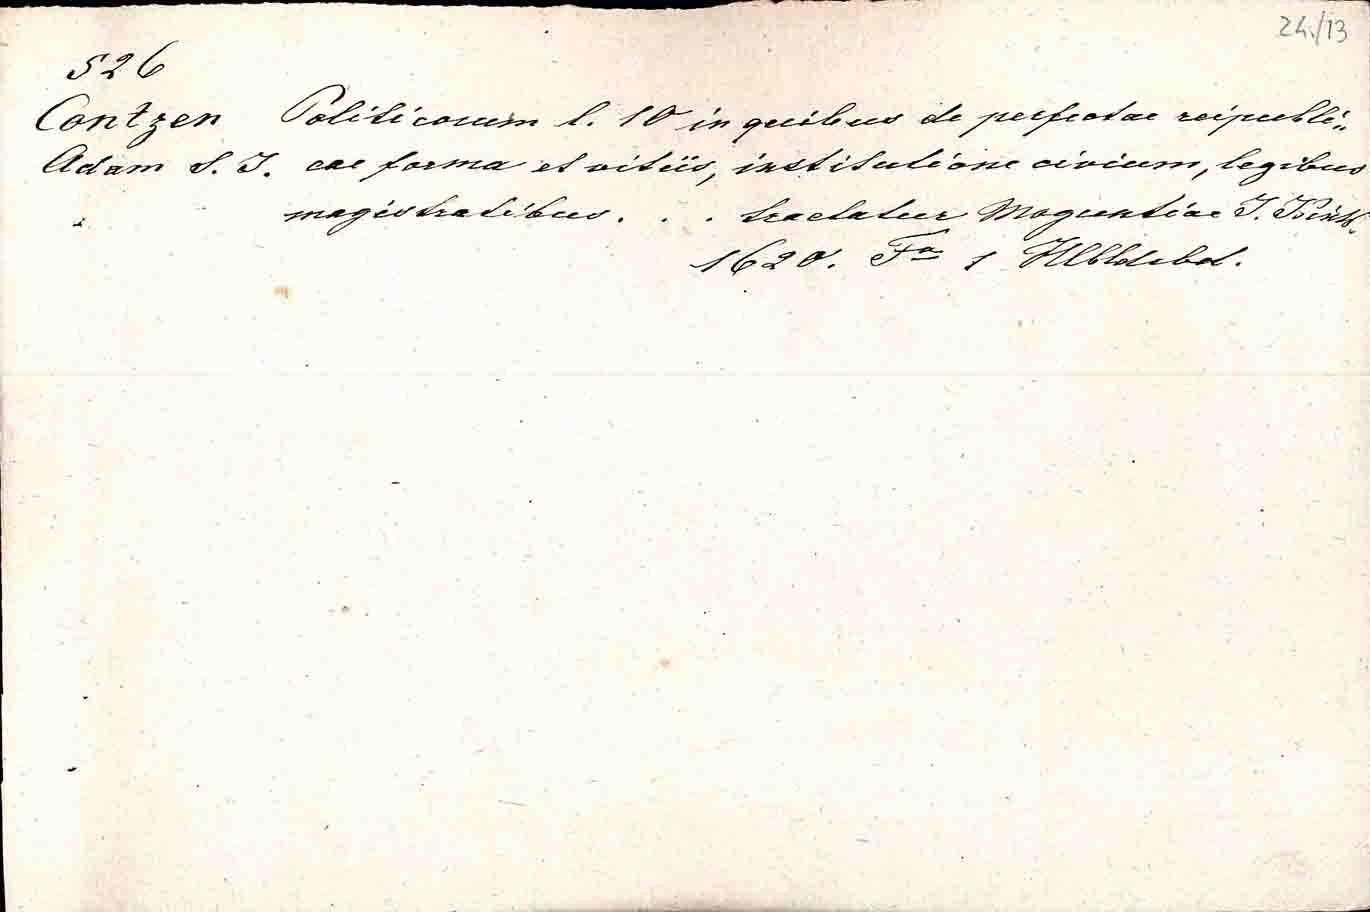 24./13
526
Contzen Politicorum l. 10 in quibus de perfectae reipubli„
Adam S. J. cae forma et vitiis, institutione civium, legibus
magistratibus . . . tractatur Moguntiae J. Kink.
1620. Fo 1 Hlbldrbd.